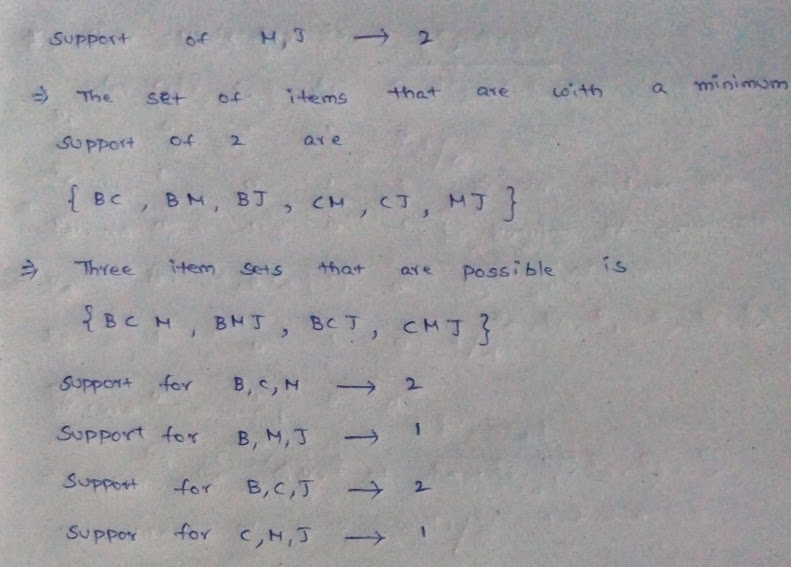 Support of M, J → 2
⇒ The set of items that are with a minimum
support of 2 are
{ BC , BM, BJ , CM , CJ , MJ }
⇒ Three item sets that are possible is
{ B C M , BMJ , BCJ , CMJ }
Support for B, C, M → 2
Support for B, M, J → 1
Support for B, C, J → 2
Suppor for C, M, J → 1